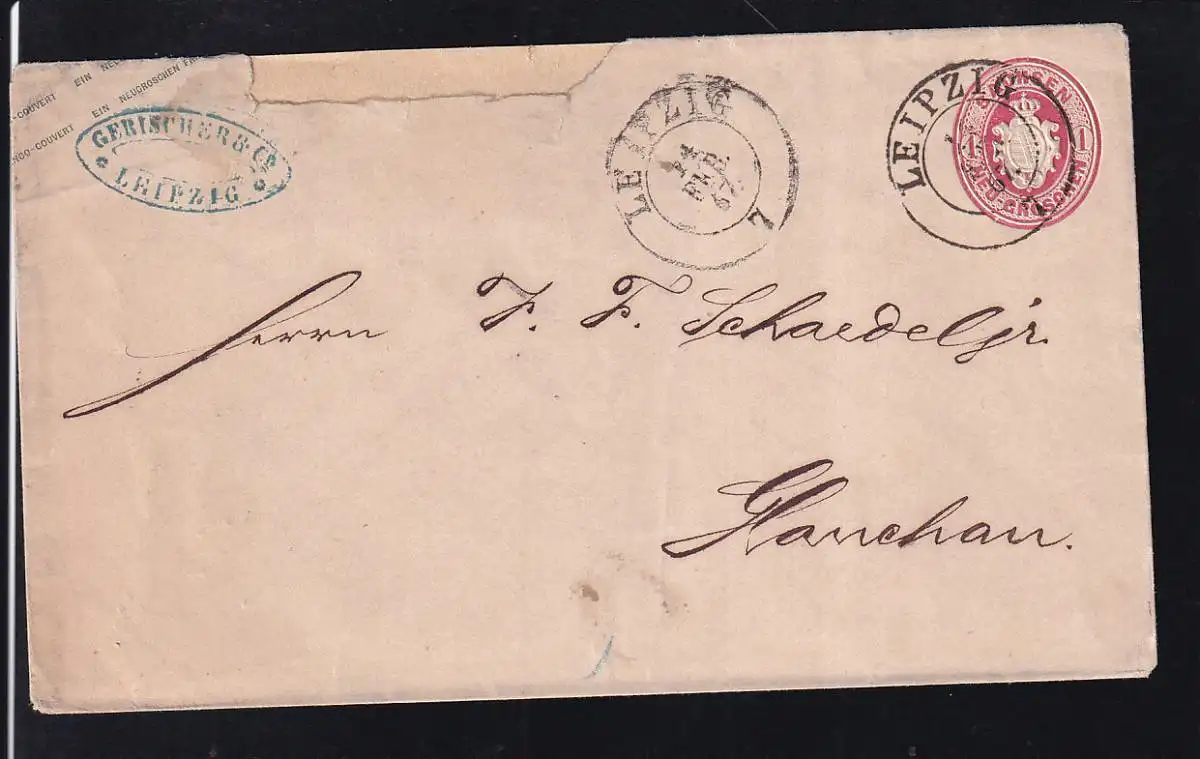 NCO-COUVERT EIN NEUGROSCHEN
COUVERT EIN NEU
GERISCHER & Co.
LEIPZIG
LEIPZIG
FEB.
67
7
LEIPZIG
SACHSEN
1 1
NEU-GROSCHEN
Herrn F. F. Schaedel jr.
Glauchau.